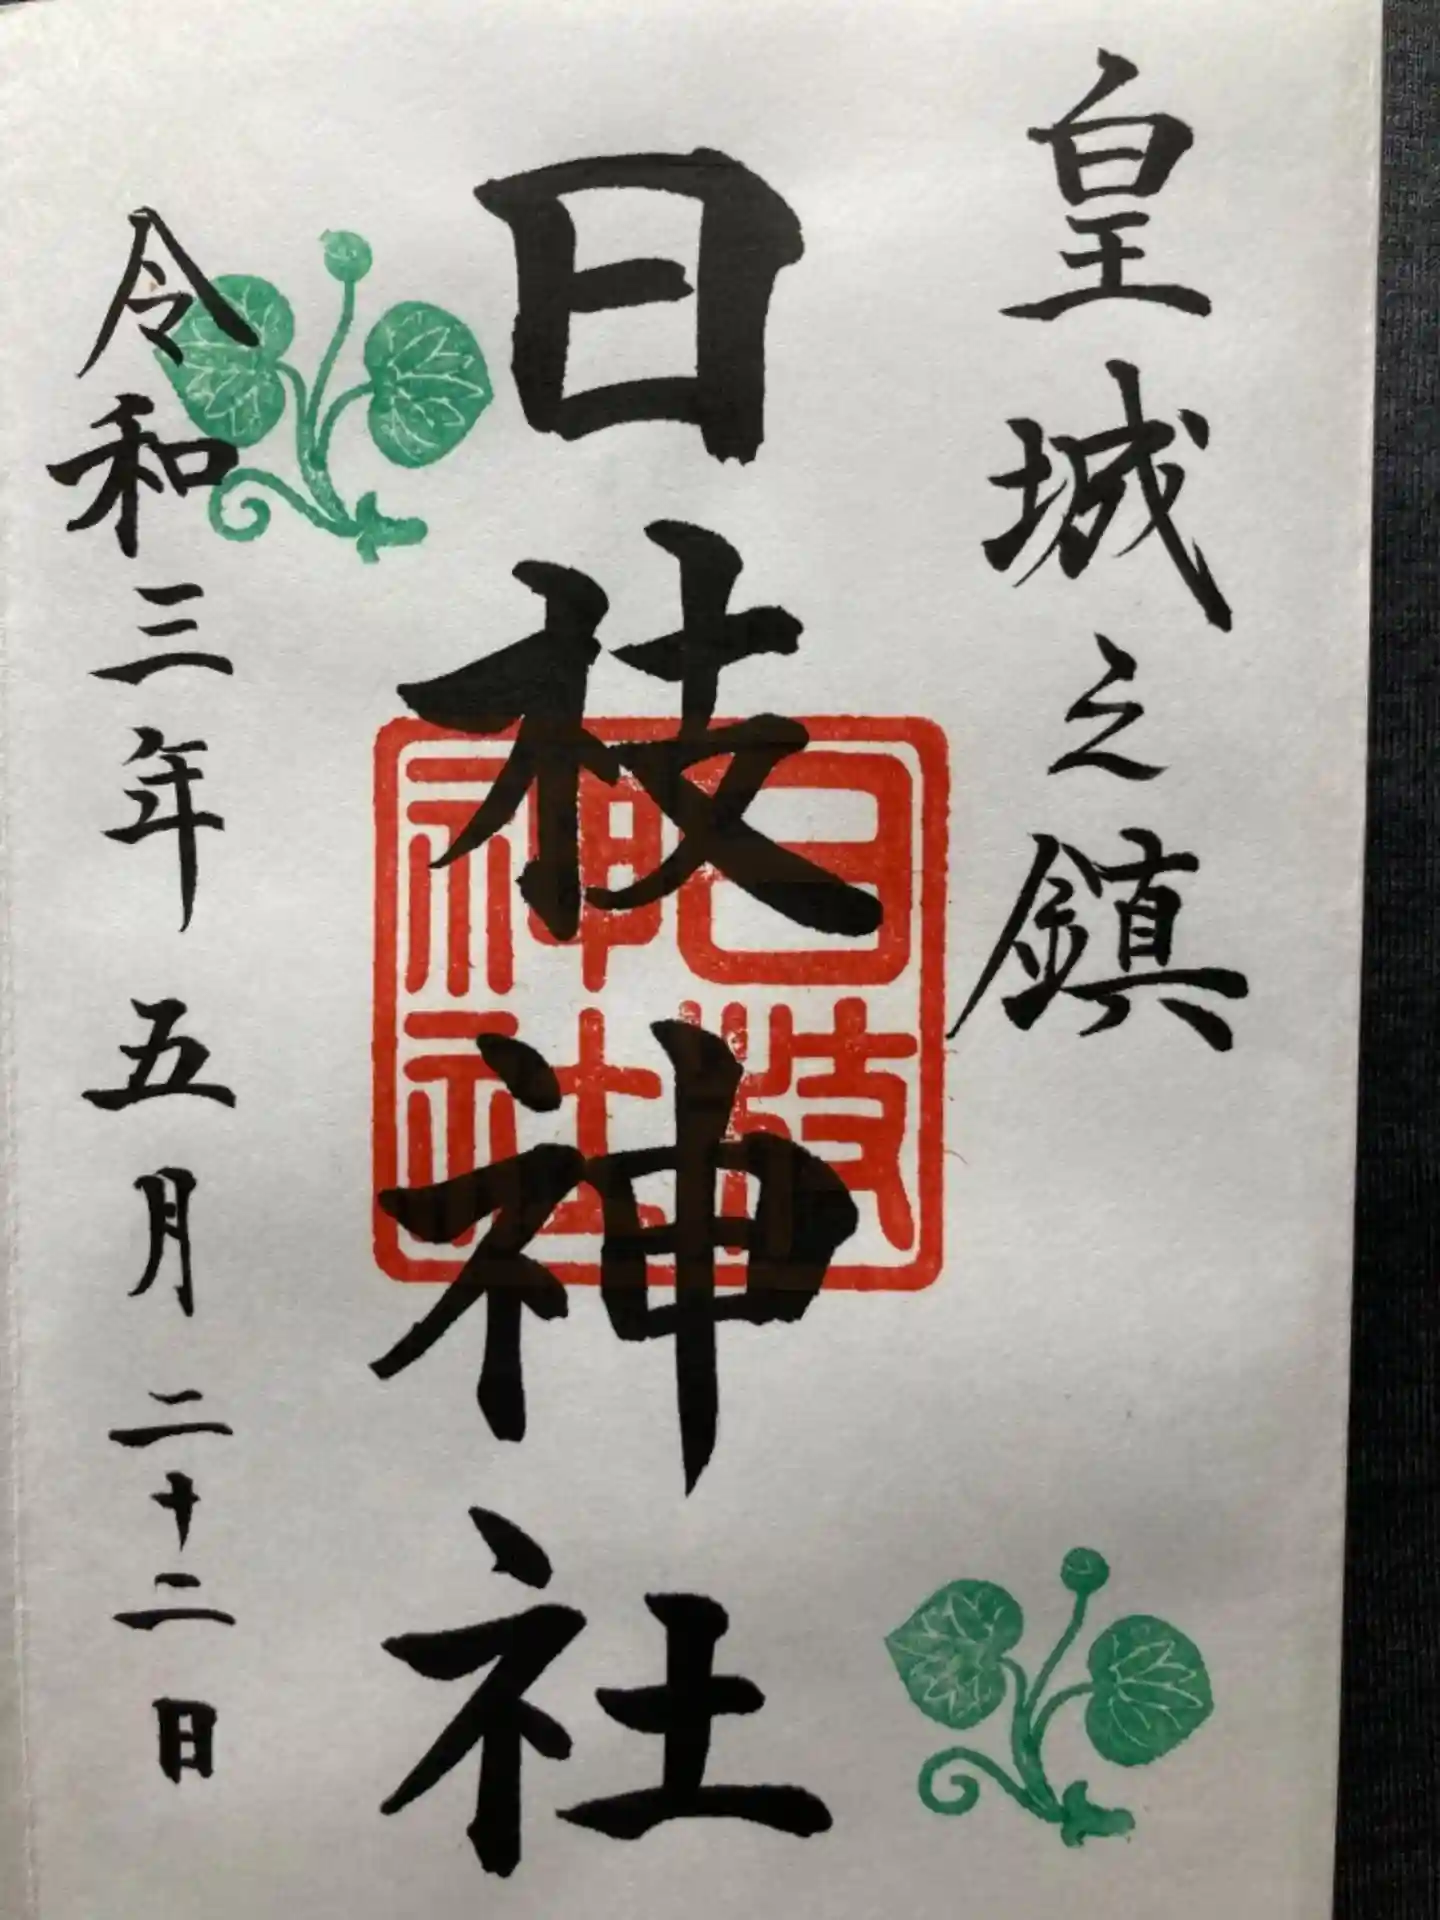 皇城之鎮
日枝神社
日枝神社
令和三年五月二十二日